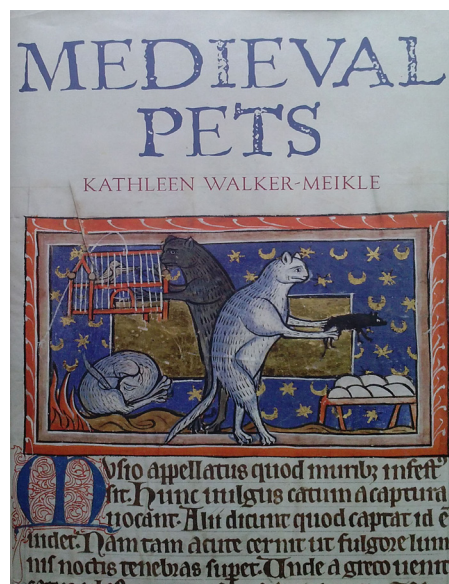 MEDIEVAL
PETS
KATHLEEN WALKER-MEIKLE
Musio appellatus quod muribz infest'
sit. Hunc uulgus catum a captura
uocant. Alii dicunt quod captat id ē
uidet. Nam tam acute cernit ut fulgore lum
inis noctis tenebras superet. Unde a greco uenit